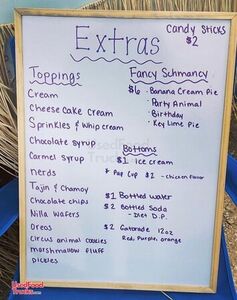 Extras
Candy Sticks
$2
Toppings
Cream
Cheese Cake Cream
Sprinkles & Whip cream
Chocolate syrup
Carmel syrup
nerds
Tajin & Chamoy
Chocolate chips
Nilla wafers
Oreos
Circus animal cookies
marshmallow fluff
pickles
Fancy Schmancy
$6 · Banana Cream Pie
· Party Animal
· Birthday
· Key Lime Pie
Bottoms
$1 Ice cream
Cup $2 - chicken flavor
$1 Bottled water
$2 Bottled Soda
- Diet D.P.
$2 Gatorade 12oz
Red, Purple, orange